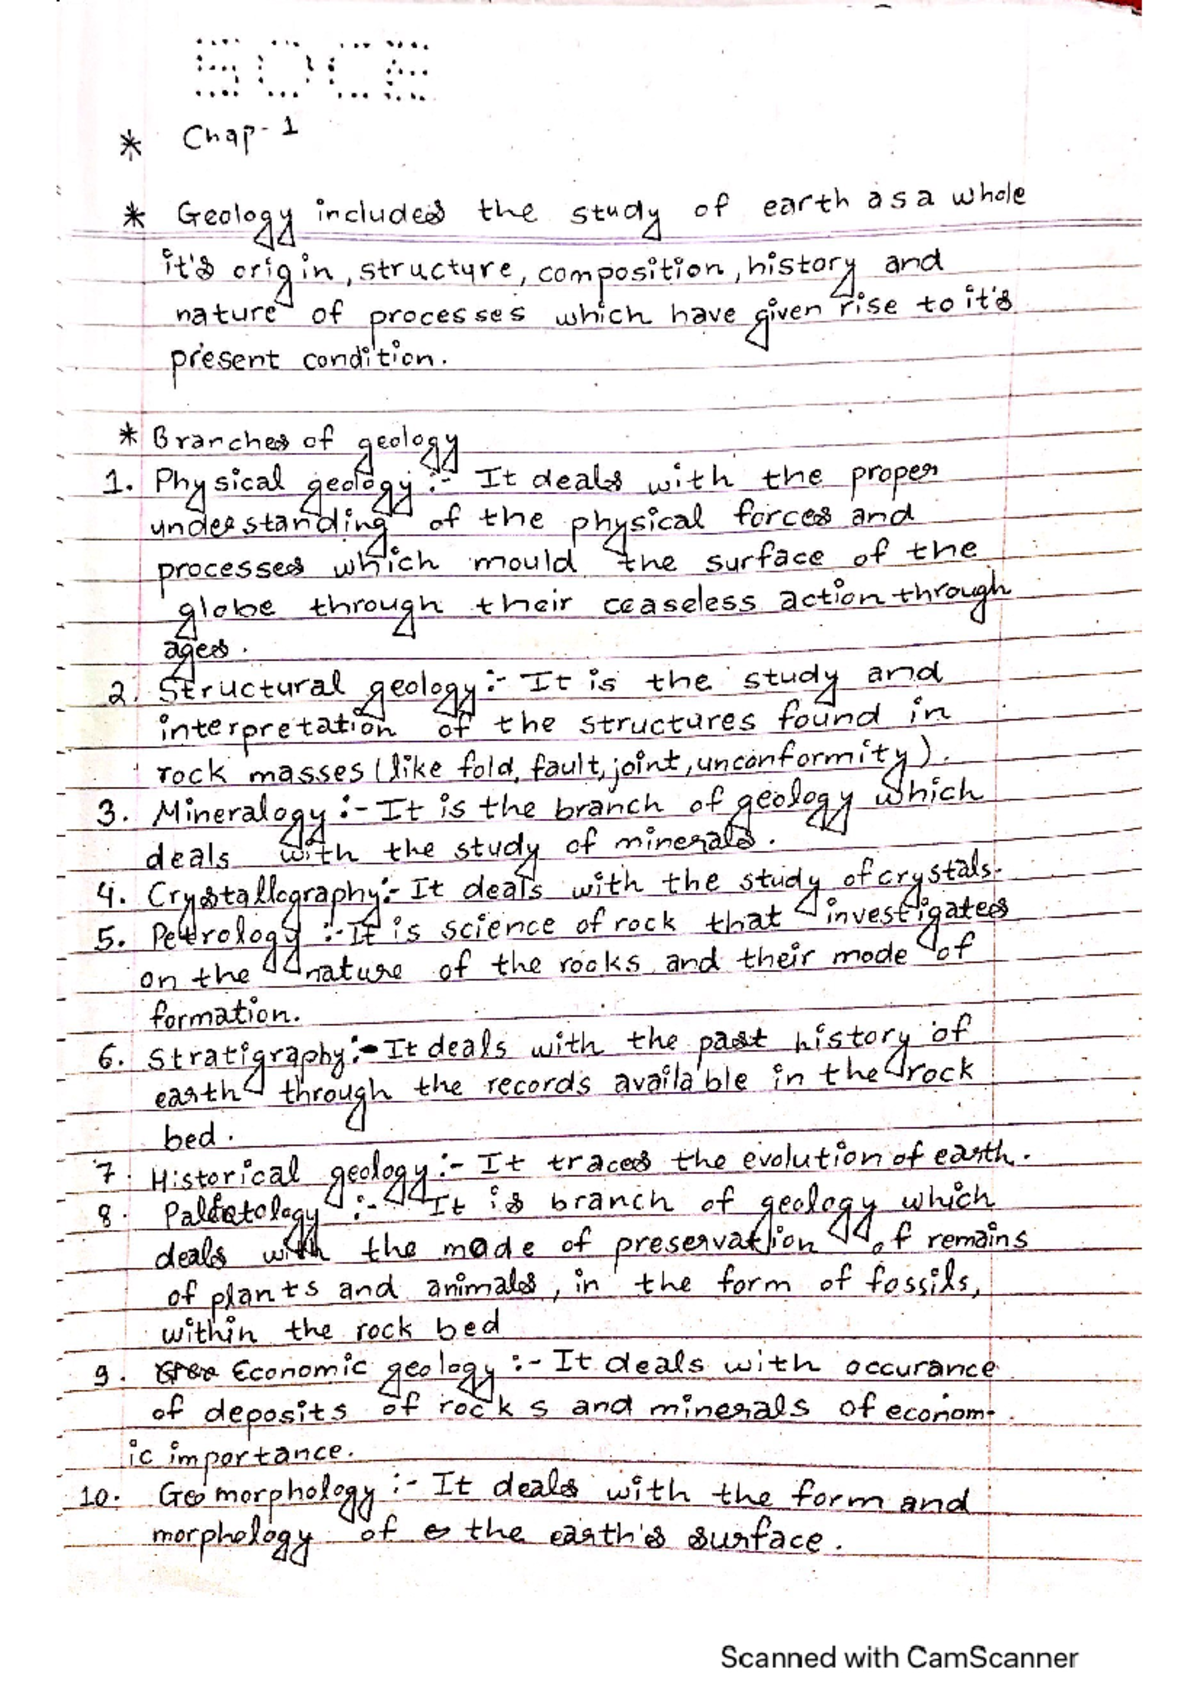 SOCE
* Chap-1
* Geology includes the study of earth as a whole
it's origin, structure, composition, history and
nature of processes which have given rise to it's
present condition.
* Branches of geology
1. Physical geology :- It deals with the proper
understanding of the physical forces and
processes which mould the surface of the
globe through their ceaseless action through
ages.
2. Structural geology :- It is the study and
interpretation of the structures found in
rock masses (like fold, fault, joint, unconformity).
3. Mineralogy :- It is the branch of geology which
deals with the study of minerals.
4. Crystallography :- It deals with the study of crystals.
5. Petrology :- It is science of rock that investigates
on the nature of the rocks and their mode of
formation.
6. Stratigraphy :- It deals with the past history of
earth through the records available in the rock
bed.
7. Historical geology :- It traces the evolution of earth.
8. :- It is branch of geology which
deals with the mode of preservation of remains
of plants and animals, in the form of fossils,
within the rock bed
9. Economic geology :- It deals with occurance
of deposits of rocks and minerals of econom-
ic importance.
10. Geomorphology :- It deals with the form and
morphology of the earth's surface.
Scanned with CamScanner